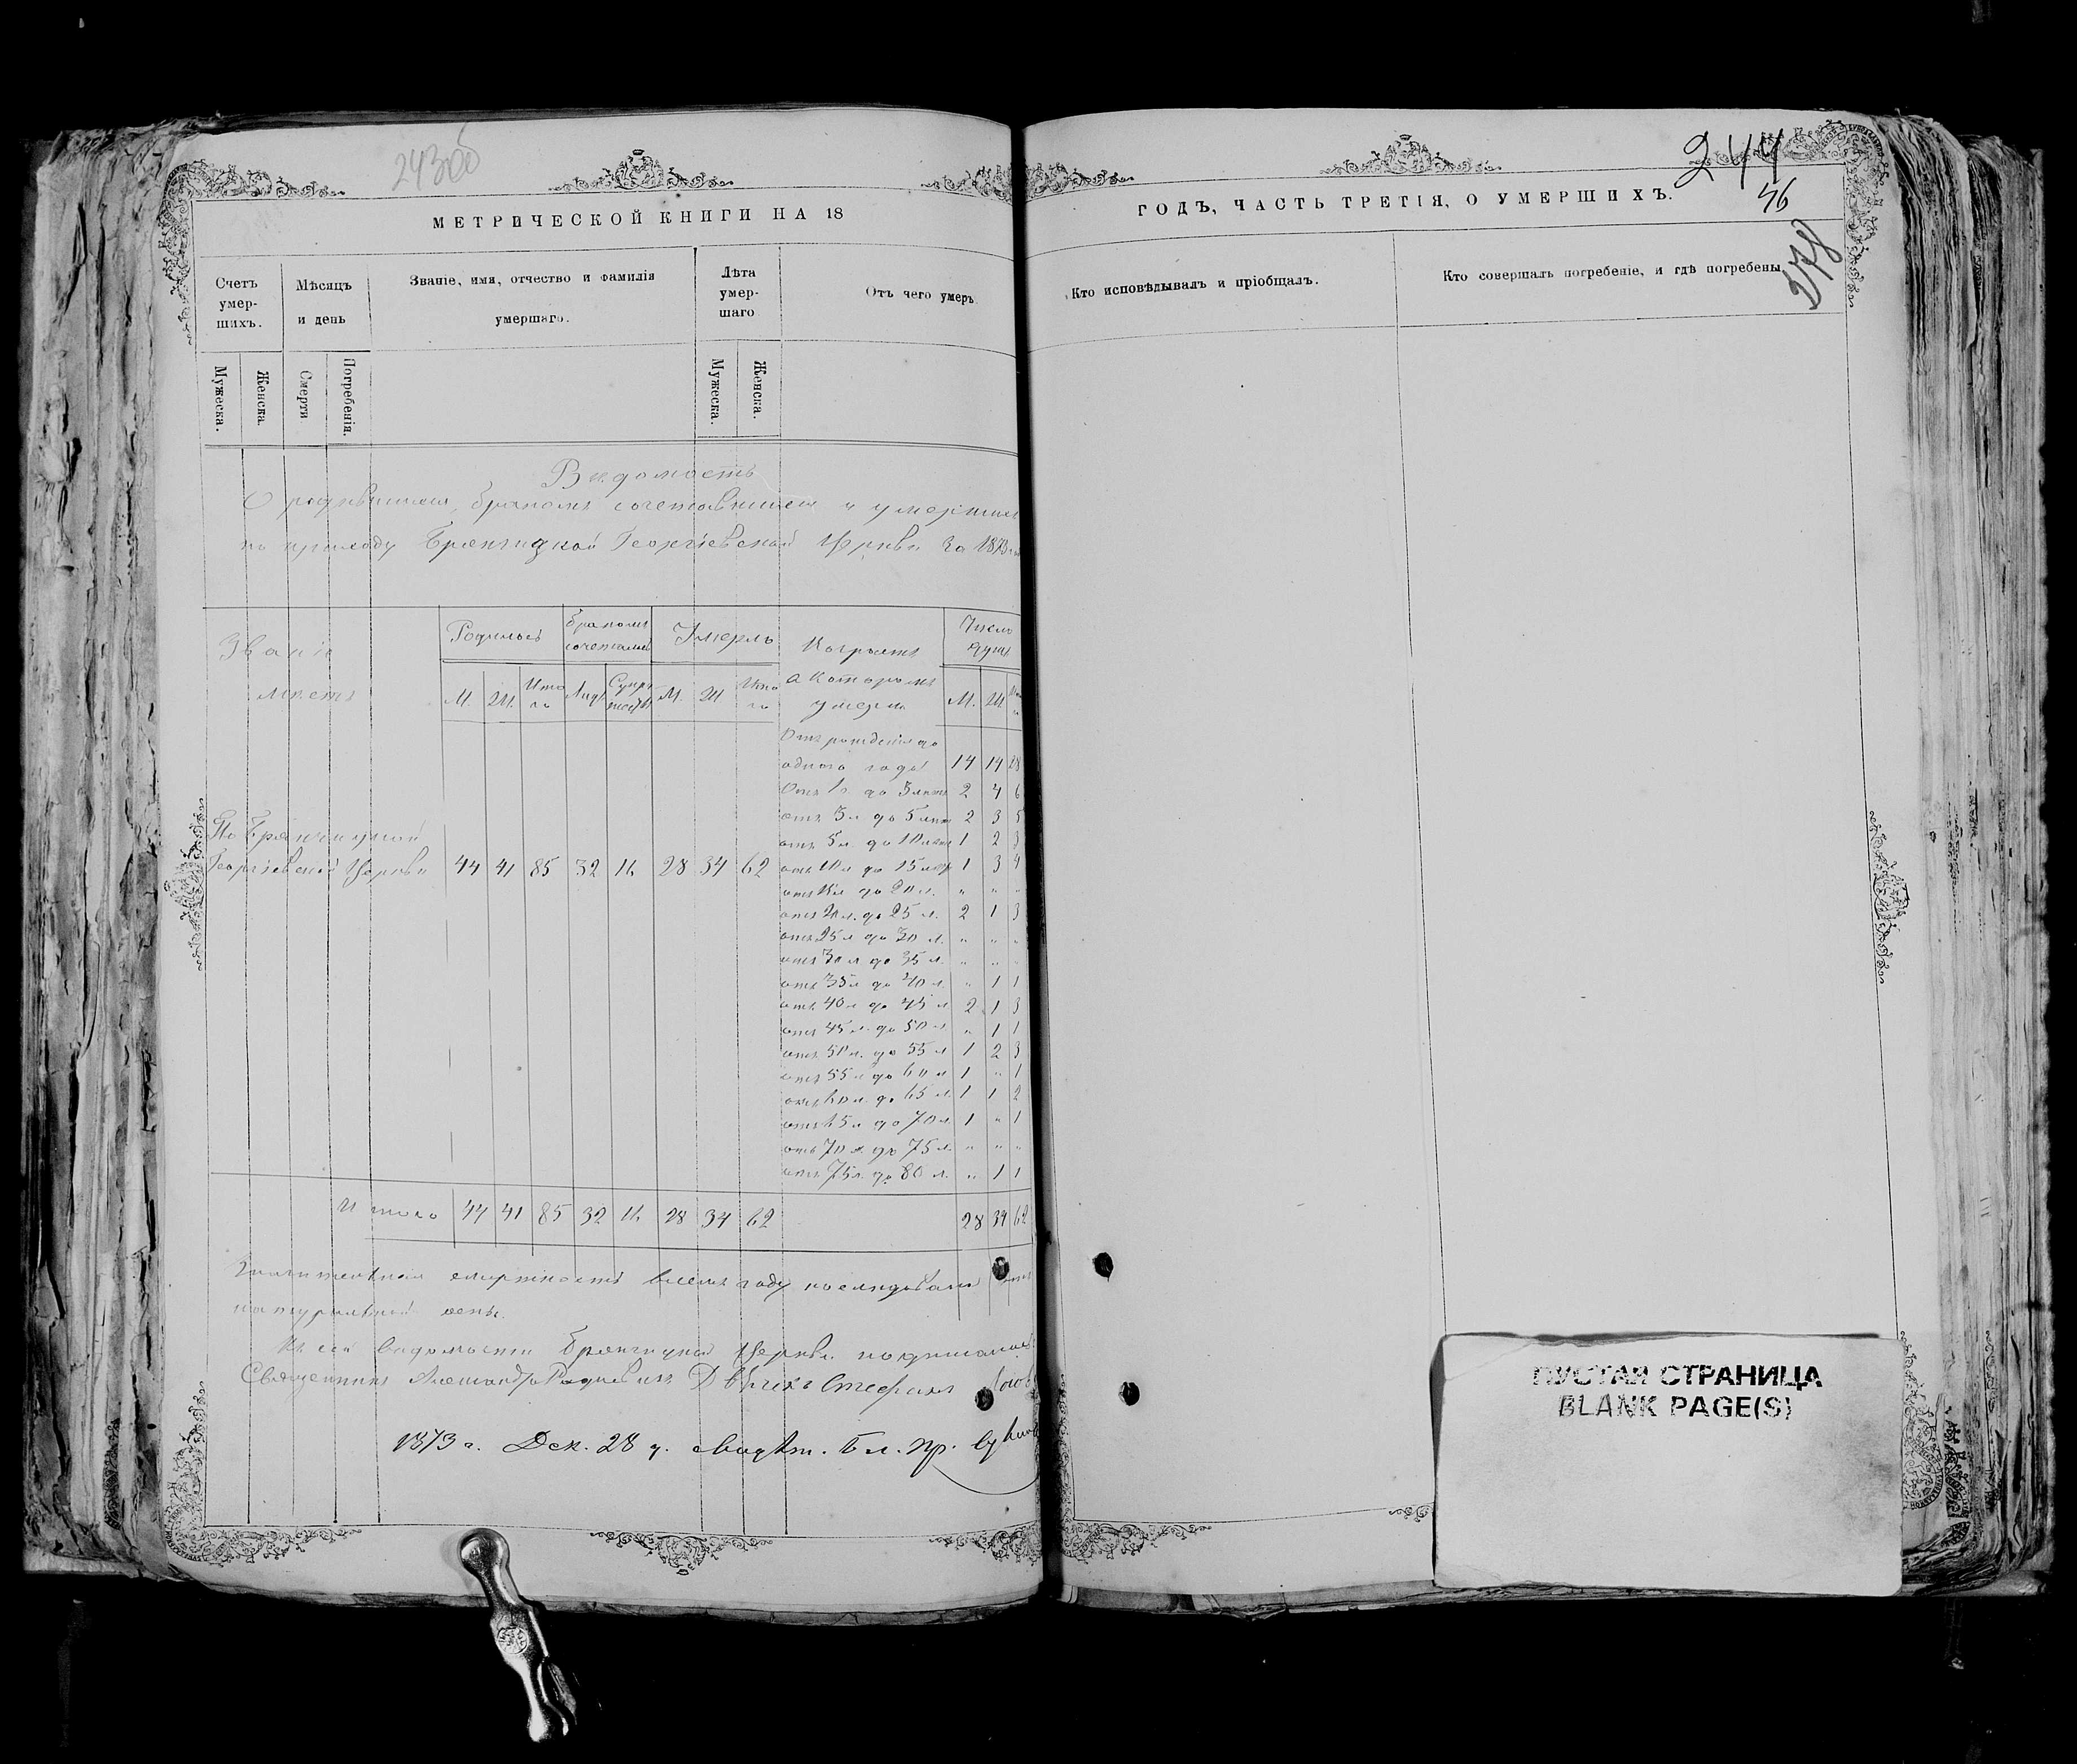 243об
МЕТРИЧЕСКОЙ КНИГИ НА 18
Счетъ умер-шихъ.
Мѣсяцъ и день
Званіе, имя, отчество и фамилія умершаго.
Лѣта умер-шаго
Отъ чего умеръ.
Мужеска.
Женска.
Смерти
Погребенія.
Мужеска.
Женска.
Вѣдомость
О родившихся, бракомъ сочетавшихся и умершихъ
по приходу Георгіевской Церкви за 1873
Званіе мѣстъ
Родилось
бракомъ сочеталось
Умерло
Возрастъ в которомъ умерли
Число душъ
М. Ж. Итого Лицъ Супружествъ М. Ж. Итого М. Ж.
Отъ рожденія до
одного года 14 14 28
Отъ 1 г. до 3 лѣтъ 2 4 6
отъ 3 л. до 5 лѣтъ 2 3 5
отъ 5 л. до 10 лѣтъ 1 2 3
По
Георгіевской Церкви 44 41 85 32 16 28 34 62
отъ 10 л. до 15 лѣтъ 1 3 4
отъ 15 л. до 20 л. " " "
отъ 20 л. до 25 л. 2 1 3
отъ 25 л. до 30 л. " " "
отъ 30 л. до 35 л. " " "
отъ 35 л. до 40 л. " 1 1
отъ 40 л. до 45 л. 2 1 3
отъ 45 л. до 50 л. " 1 1
отъ 50 л. до 55 л. 1 2 3
отъ 55 л. до 60 л. 1 " 1
отъ 60 л. до 65 л. 1 1 2
отъ 65 л. до 70 л. 1 " 1
отъ 70 л. до 75 л. " " "
отъ 75 л. до 80 л. " 1 1
Итого 44 41 85 32 16 28 34 62 28 34 62
смертность в семъ году послѣдовала
натуральной оспы.
Къ сей вѣдомости Церкви подписались
Священникъ Александръ Дьячекъ Стефанъ
1873 г. Дек. 28 д. свидѣт. Бл. пр.
244
46
278
ГОДЪ, ЧАСТЬ ТРЕТІЯ, О УМЕРШИХЪ.
Кто исповѣдывалъ и пріобщалъ.
Кто совершалъ погребеніе, и гдѣ погребены
ПУСТАЯ СТРАНИЦА
BLANK PAGE(S)